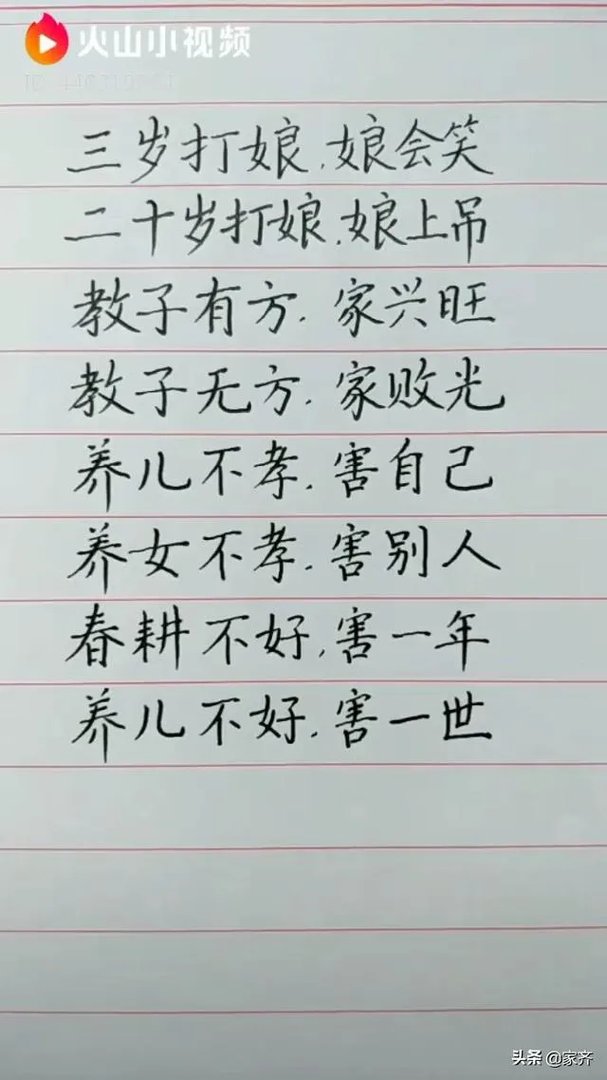 火山小视频
三岁打娘,娘会笑
二十岁打娘,娘上吊
教子有方.家兴旺
教子无方.家败光
养儿不孝.害自己
养女不孝.害别人
春耕不好,害一年
养儿不好.害一世
头条 @家齐